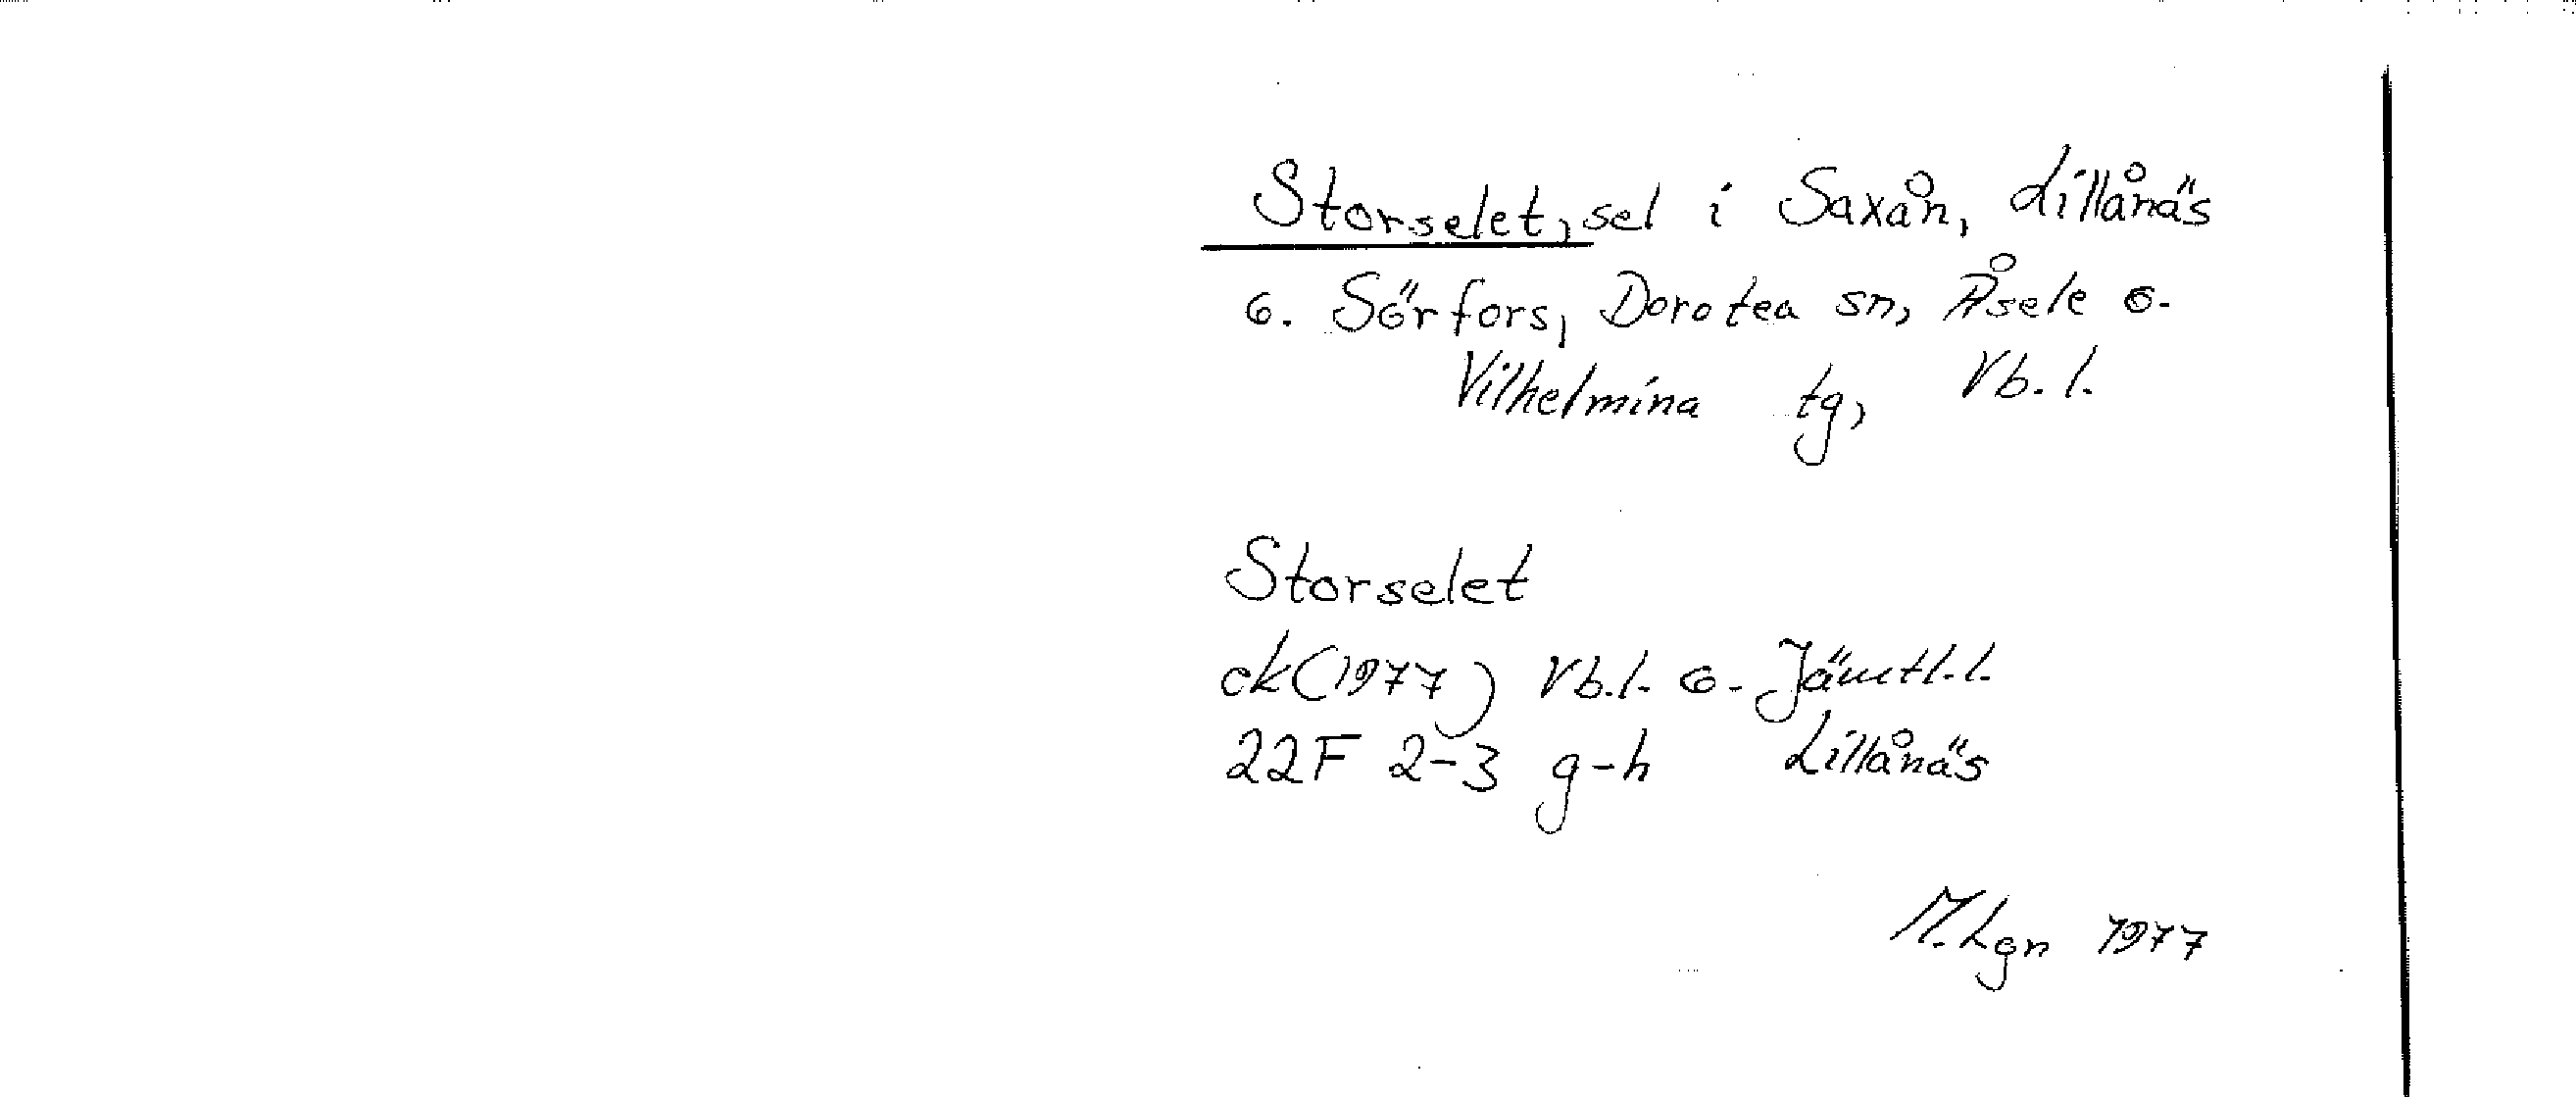 Storselet, sel i Saxån, Lillånäs
o. Sörfors, Dorotea sn, Åsele o.
Vilhelmina tg, Vb. l.
Storselet
ek (1977) Vb. l. o. Jämtl. l.
22F 2-3 g-h Lillånäs
M. Lgn 1977